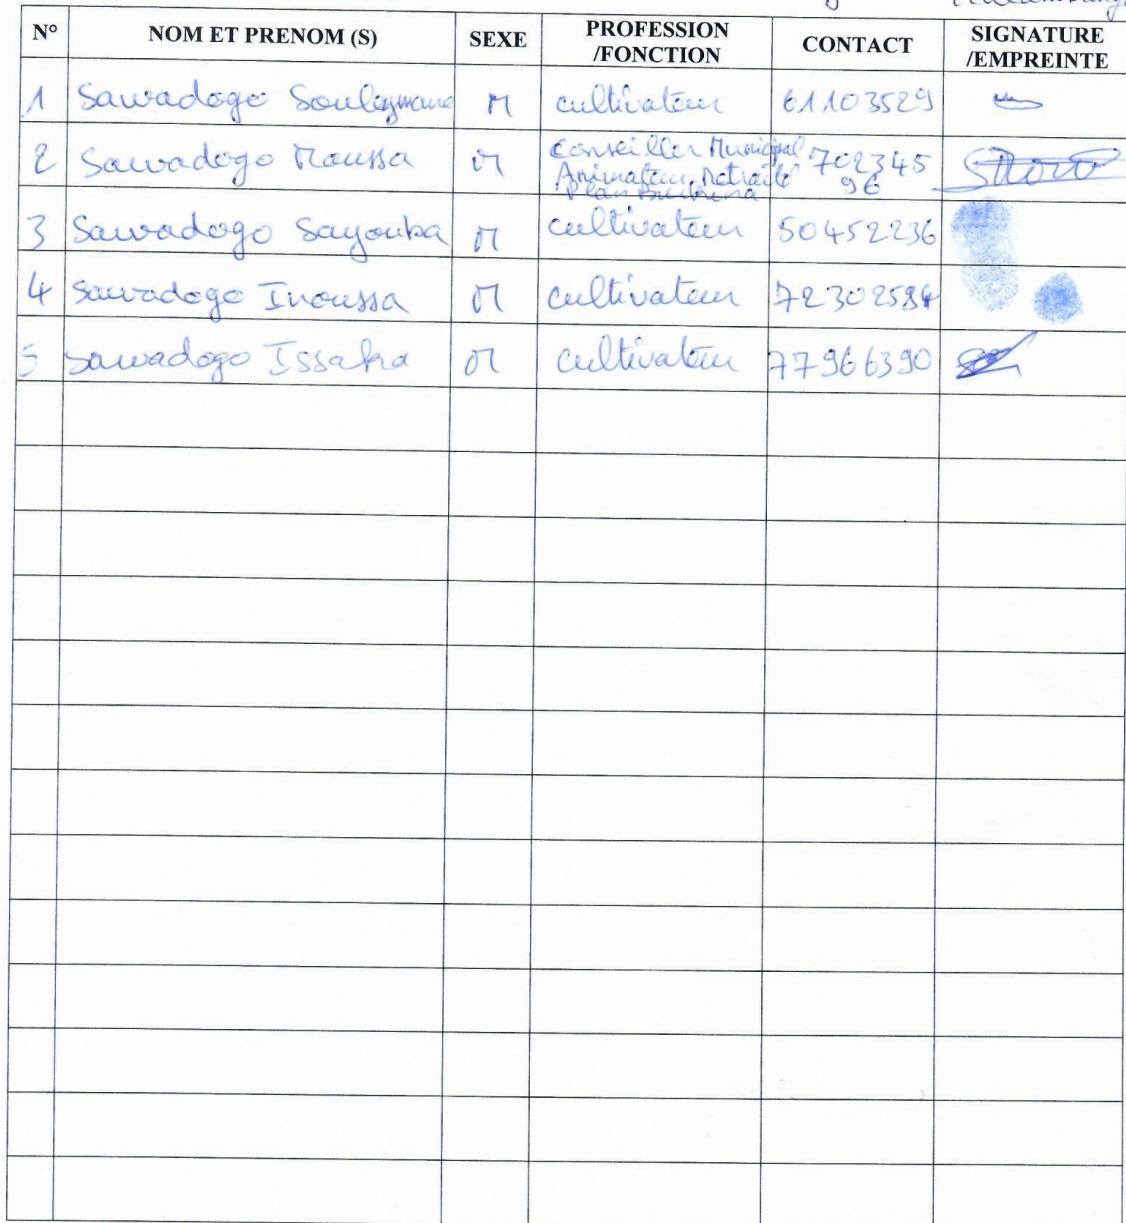 N° NOM ET PRENOM (S) SEXE PROFESSION /FONCTION CONTACT SIGNATURE /EMPREINTE
1 Sawadogo Souleymane M cultivateur 61103529
2 Sawadogo Moussa M Conseiller Municipal Animateur Retraité Plan Burkina 70234596
3 Sawadogo Sayouba M cultivateur 50452236
4 Sawadogo Inoussa M cultivateur 72302584
5 Sawadogo Issaka M cultivateur 77966390